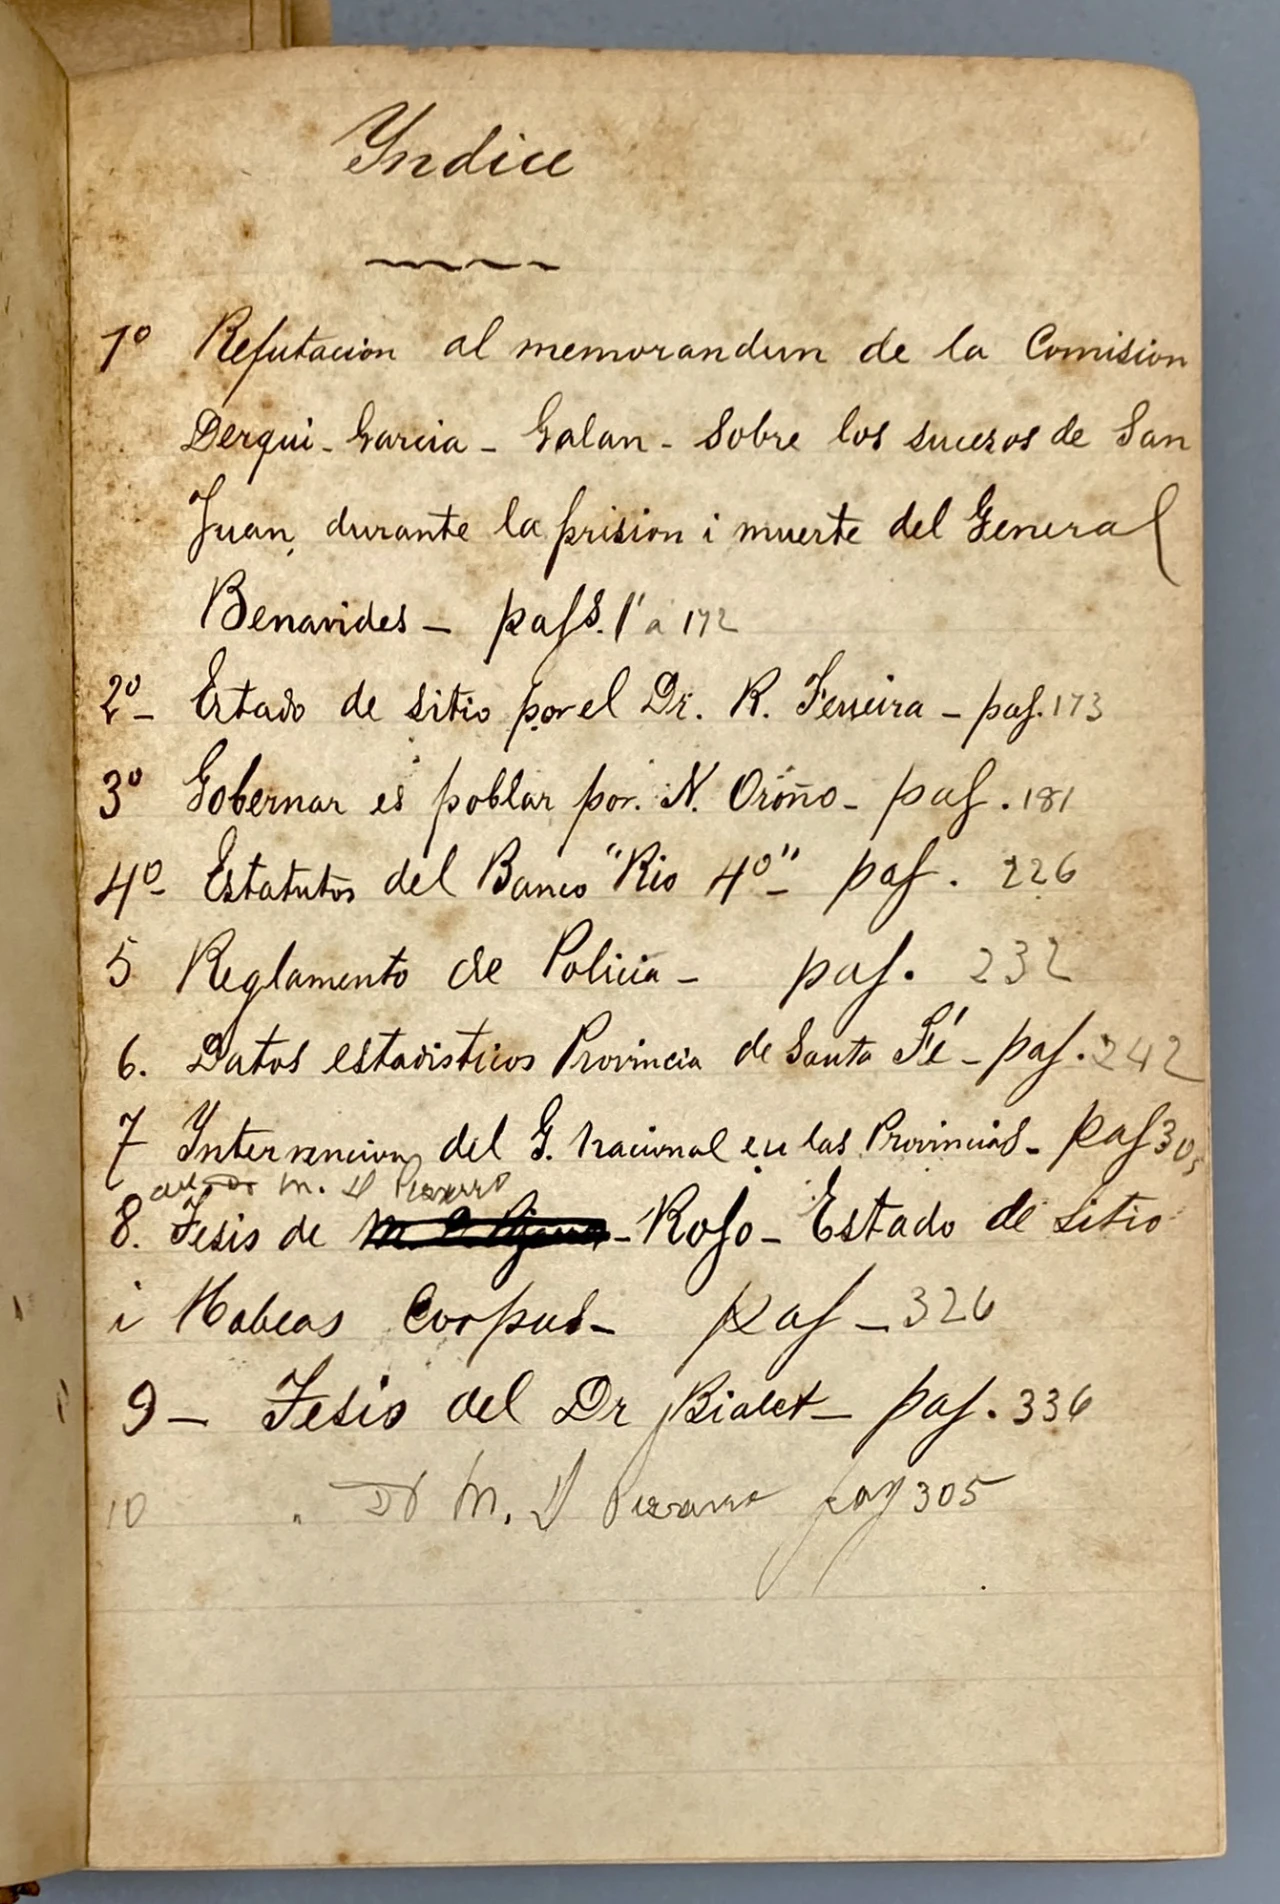 Yndice
1º Refutacion al memorandun de la Comision
Derqui - Garcia - Galan - Sobre los sucesos de San
Juan, durante la prision i muerte del General
Benavides - pajs. 1 a 172
2º Estado de sitio por el Dr. R. Ferreira - paj. 173
3º Gobernar es poblar por. N. Oroño - paj. 181
4º Estatutos del Banco "Rio 4º" paj. 226
5 Reglamento de Policia - paj. 232
6. Datos estadisticos Provincia de Santa Fé - paj. 242
7 Intervencion del G. Nacional en las Provincias - paj 305
M. D Pizarro
8. Tesis de - Rojo - Estado de sitio
i Habeas Corpus - paj - 326
9 - Tesis del Dr Bialet - paj. 336
10 " Dr M. D Pizarro pag 305